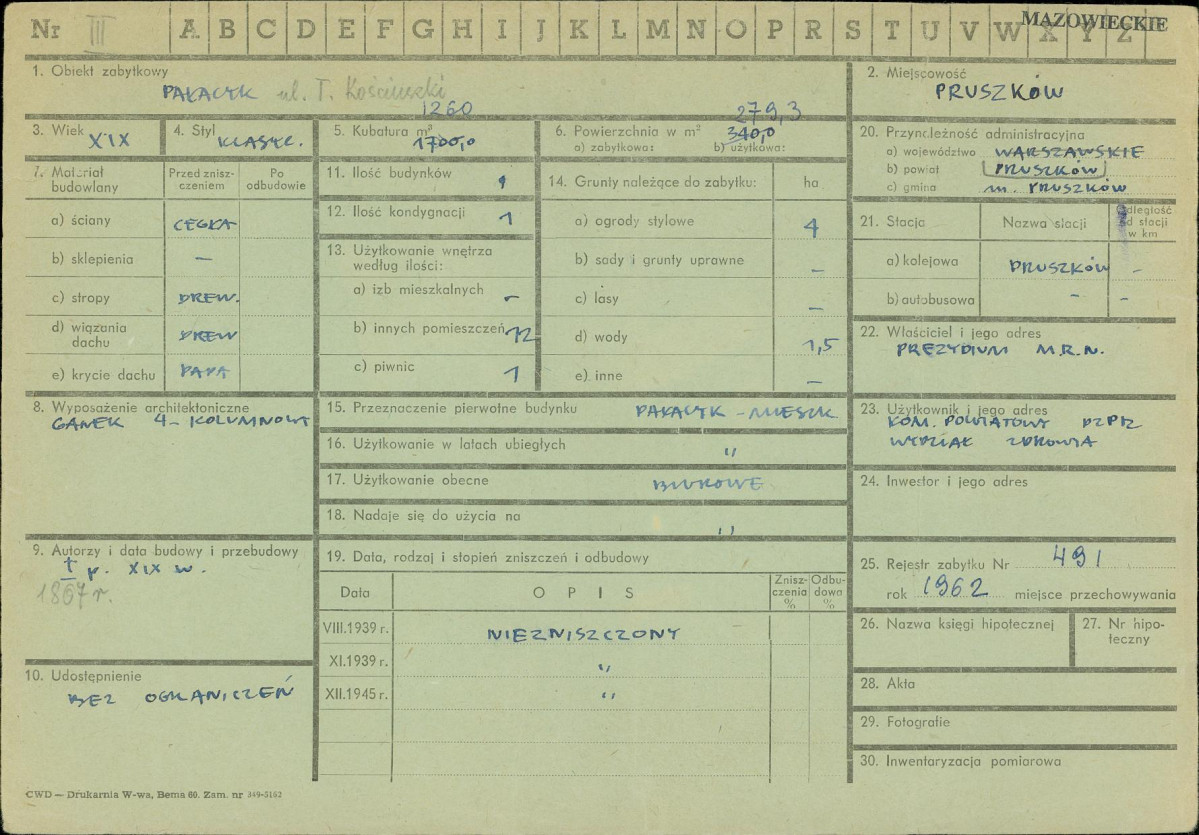 Nr III A B C D E F G H I J K L M N O P R S T U V W X Y Z MAZOWIECKIE
1. Obiekt zabytkowy
PAŁACYK ul. T. Kościuszki
2. Miejscowość
PRUSZKÓW
3. Wiek XIX
4. Styl KLASYC.
5. Kubatura m³
1260
1700,0
6. Powierzchnia w m²
279,3
340,0
a) zabytkowa: b) użytkowa:
7. Materiał budowlany
Przed znisz-
czeniem
Po
odbudowie
a) ściany CEGŁA
b) sklepienia –
c) stropy DREW.
d) wiązania
dachu DREW
e) krycie dachu PAPA
8. Wyposażenie architektoniczne
GANEK 4-KOLUMNOWY
9. Autorzy i data budowy i przebudowy
I p. XIX w.
1867 r.
10. Udostępnienie
BEZ OGRANICZEŃ
11. Ilość budynków 1
12. Ilość kondygnacji 1
13. Użytkowanie wnętrza
według ilości:
a) izb mieszkalnych –
b) innych pomieszczeń 12
c) piwnic 1
14. Grunty należące do zabytku: ha
a) ogrody stylowe 4
b) sady i grunty uprawne –
c) lasy –
d) wody 1,5
e) inne –
15. Przeznaczenie pierwotne budynku PAŁACYK - MIESZK
16. Użytkowanie w latach ubiegłych "
17. Użytkowanie obecne BIUROWE
18. Nadaje się do użycia na "
19. Data, rodzaj i stopień zniszczeń i odbudowy
Data OPIS
Znisz-
czenia
%
Odbu-
dowa
%
VIII.1939 r. NIEZNISZCZONY
XI.1939 r. "
XII.1945 r. "
20. Przynależność administracyjna
a) województwo WARSZAWSKIE
b) powiat PRUSZKÓW
c) gmina m. PRUSZKÓW
21. Stacja Nazwa stacji
Odległość
od stacji
w km
a) kolejowa PRUSZKÓW –
b) autobusowa – –
22. Właściciel i jego adres
PREZYDIUM M.R.N.
23. Użytkownik i jego adres
KOM. POWIATOWY PZPR
WYDZIAŁ ZDROWIA
24. Inwestor i jego adres
25. Rejestr zabytku Nr 491
rok 1962 miejsce przechowywania
26. Nazwa księgi hipotecznej
27. Nr hipo-
teczny
28. Akta
29. Fotografie
30. Inwentaryzacja pomiarowa
CWD — Drukarnia W-wa, Bema 60. Zam. nr 349-5162